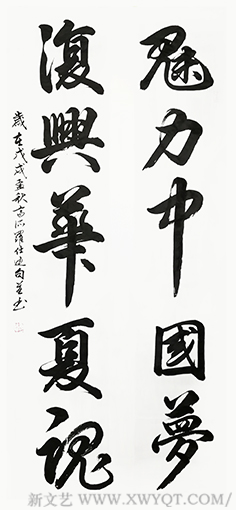 魅力中國夢
復興華夏魂
歲在戊戌孟秋
新文艺 WWW.XWYQT.COM/